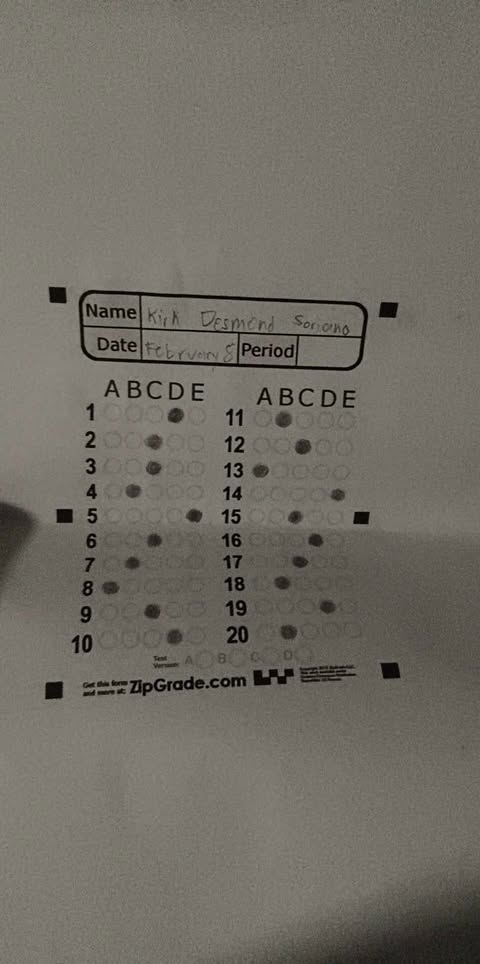 Name Kirk Desmond Soriano
Date February 8 Period
A B C D E
1
2
3
4
5
6
7
8
9
10
A B C D E
11
12
13
14
15
16
17
18
19
20
Test Version: A B C D
Get this form
and more at: ZipGrade.com